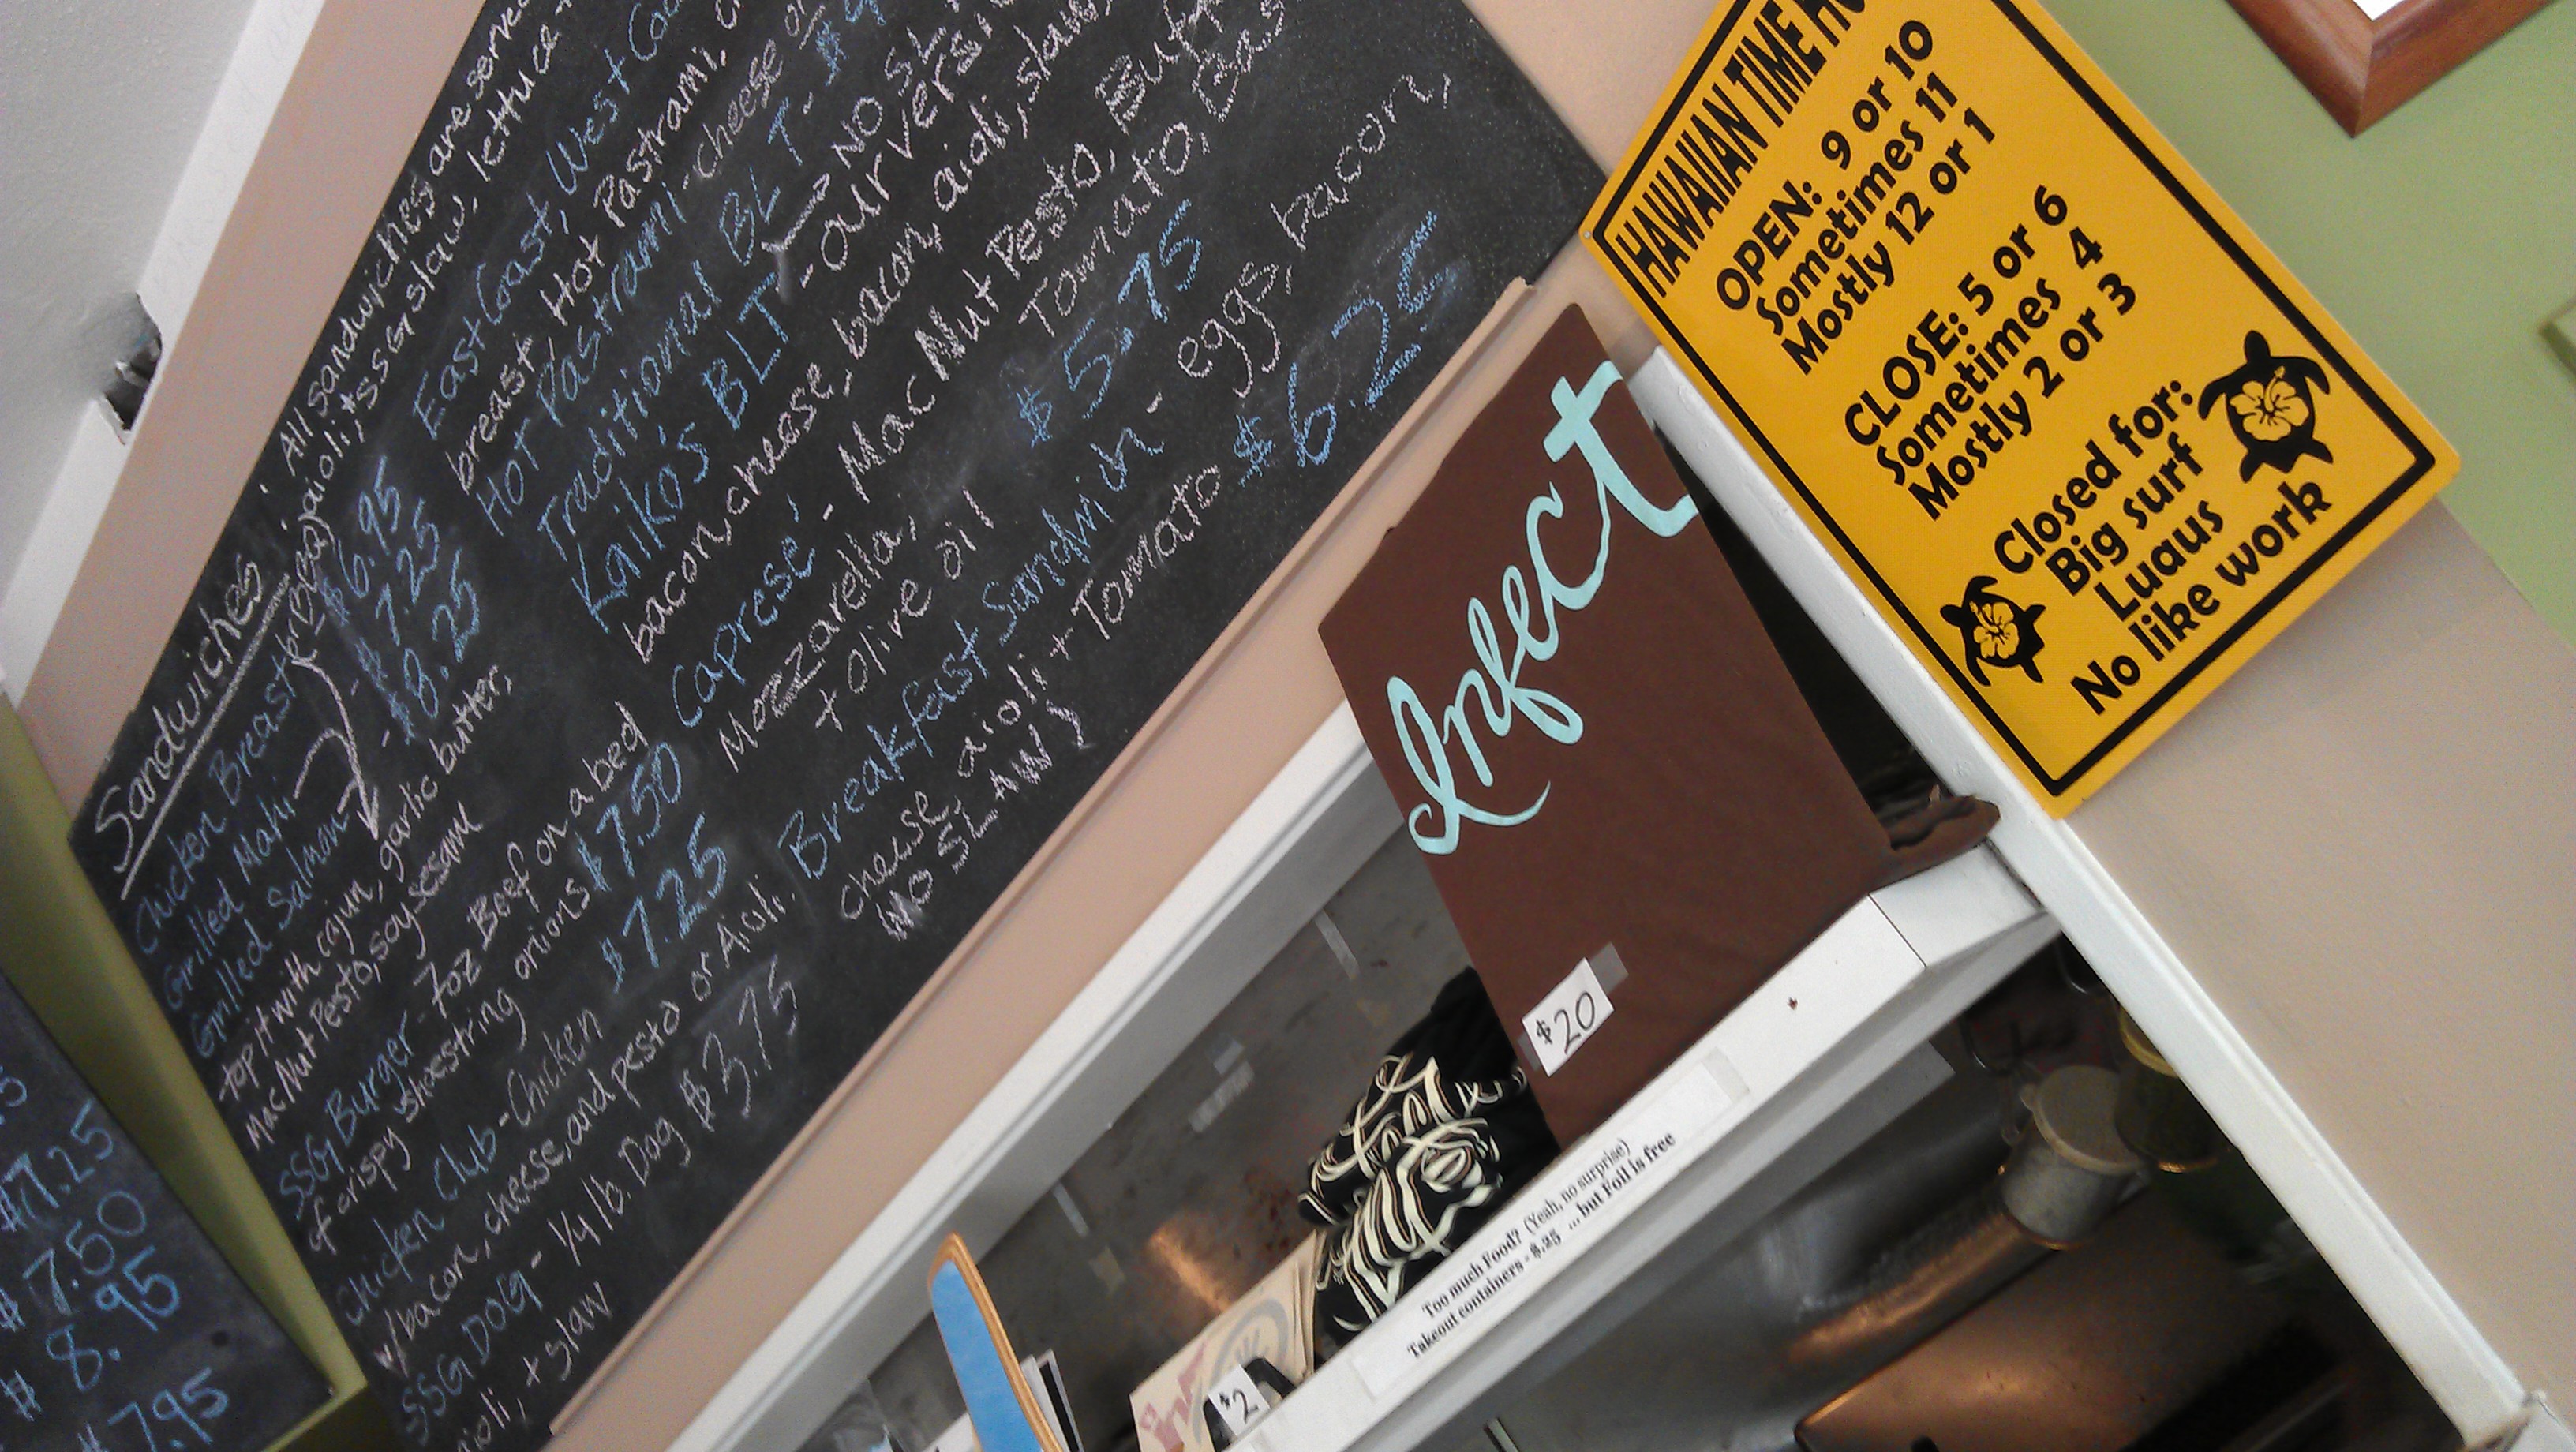 Sandwiches: All sandwiches are served
aioli, + SSG slaw, lettuce +
Chicken Breast $6.95
Grilled Mahi - $7.25
Grilled Salmon - $8.25
top it with cajun, garlic butter,
Mac Nut Pesto, soy sesame
SSG Burger - 7oz Beef on a bed
of crispy shoestring onions $7.50
Chicken Club - Chicken $7.25
w/ bacon, cheese, and pesto or Aioli.
SSG DOG - 1/4 lb. Dog $3.75
aioli, + slaw
East Coast, West Coast
breast, Hot Pastrami,
Hot Pastrami - cheese or
Traditional BLT -
Kaiko's BLT - our versi
NO SL
bacon cheese, bacon, aioli, slaw
Caprese' - Mac Nut Pesto, Buf
Mozzarella, Tomato, Bas
+ olive oil $5.75
Breakfast Sandwich - eggs, bacon,
cheese aioli + Tomato $6.25
(NO SLAW)
$7.25
$7.50
$8.95
$7.95
HAWAIIAN TIME
OPEN: 9 or 10
Sometimes 11
Mostly 12 or 1
CLOSE: 5 or 6
Sometimes 4
Mostly 2 or 3
Closed for:
Big surf
Luaus
No like work
Infect
$20
Too much Food? (Yeah, no surprise)
Takeout containers - $.25 ... but Foil is free
$2